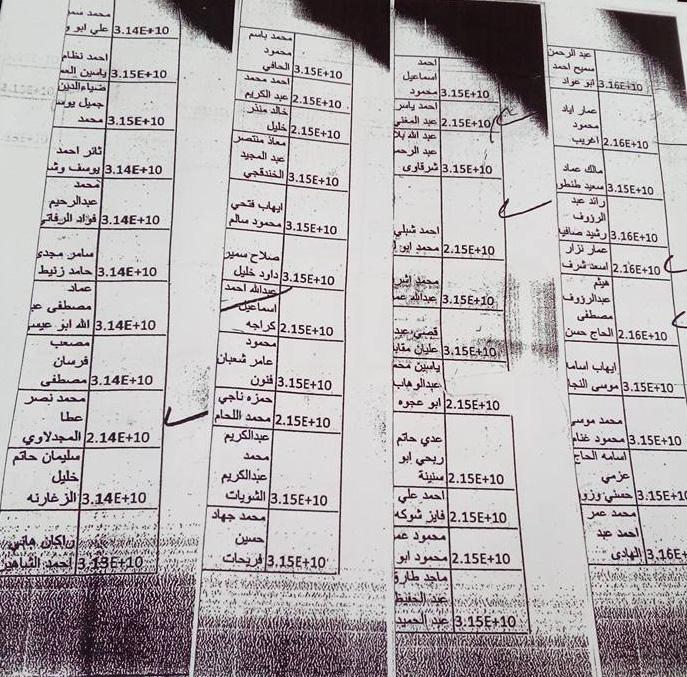 عبد الرحمن
سميح احمد
ابو عواد 3.16E+10
عمار اياد
محمود
اغريب 2.16E+10
مالك عماد
سعيد طنطو 3.15E+10
رائد عبد
الرزوف
رشيد صافيا 3.16E+10
عمار نزار
اسعد شرف 2.16E+10
هيثم
عبدالرزوف
مصطفى
الحاج حسن 2.16E+10
ايهاب اسامه
موسى النجا 3.15E+10
محمد موسى
محمود غنام 3.15E+10
اسامه الحاج
عزمي
حسني وزو 3.15E+10
محمد عمر
احمد عبد
الهادى 3.16E+
احمد
اسماعيل
محمود 3.15E+10
احمد ياسر
عبد المغني 2.15E+10
عبد الله بلا
عبد الرحمـ
شرقاوى 3.15E+10
احمد شبلي
محمد ابو 2.15E+10
محمد اشر
عبدالله عمـ 3.15E+10
قصي عبد
عليان مقابا 3.15E+10
ياسين محمـ
عبدالوهاب
ابو عجوه 2.15E+10
عدي حاتم
ربحي ابو
سنينة 2.15E+10
احمد علي
فايز شوكه 2.15E+10
محمود عمـ
محمود ابو 2.15E+10
ماجد طارق
عبد الحفيظ
عبد الحميد 3.15E+10
محمد باسم
محمود
الحافي 3.15E+10
احمد محمد
عبد الكريم 2.15E+10
خالد منذر
خليل 2.15E+10
معاذ منتصر
عبد المجيد
الخندقجي 3.15E+10
ايهاب فتحي
محمود سالم 3.15E+10
صلاح سمير
داود خليل 3.15E+10
عبدالله احمد
اسماعيل
كراجه 2.15E+10
محمود
عامر شعبان
فنون 3.15E+10
حمزه ناجي
محمد اللحام 2.15E+10
عبدالكريم
محمد
عبدالكريم
الشويات 3.15E+10
محمد جهاد
حسين
فريحات 3.15E+10
محمد سمـ
علي ابو و 3.14E+10
احمد نظام
ياسين العمـ 3.15E+10
ضياءالدين
جميل يوسـ
محمد 3.15E+10
ثائر احمد
يوسف وشـ 3.14E+10
محمد
عبدالرحيم
فؤاد الرفاتي 3.14E+10
سامر مجدي
حامد زنيط 3.14E+10
عماد
مصطفى عبـ
الله ابو عيسـ 3.14E+10
مصعب
فرسان
مصطفى 3.14E+10
محمد نصر
عطا
المجدلاوي 2.14E+10
سليمان حاتم
خليل
الزغارنه 3.14E+10
راكان هاني
احمد الشاهر 3.13E+10